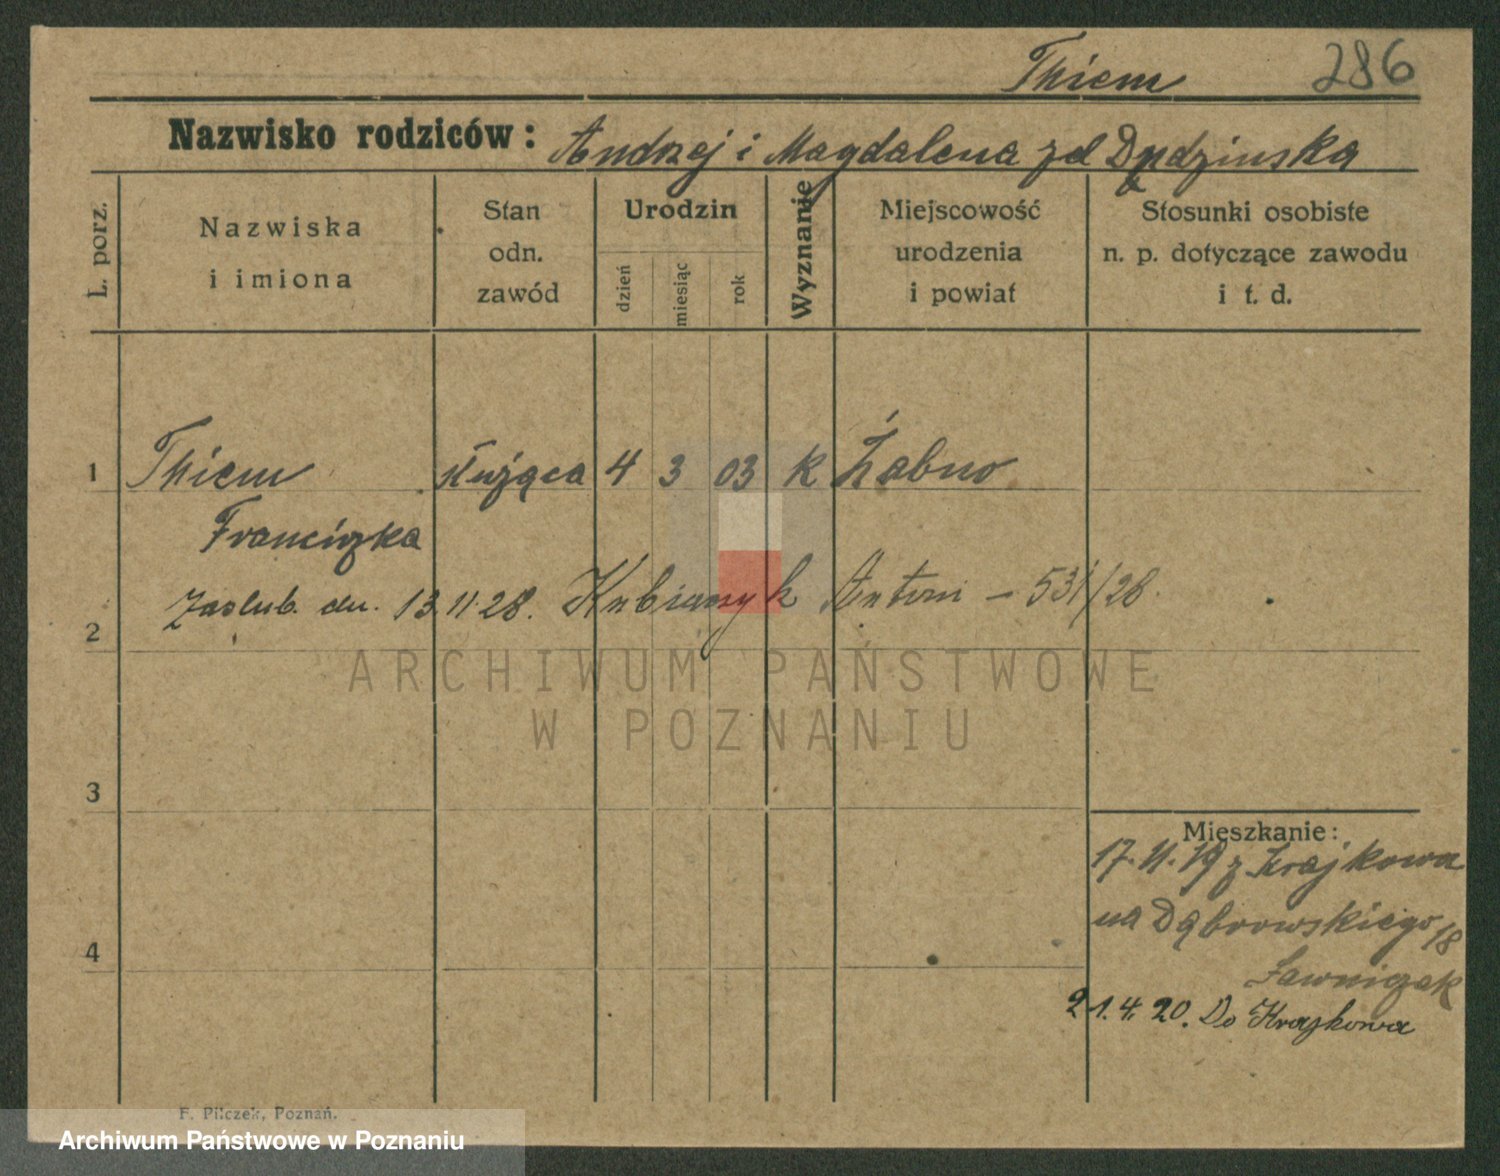 Thiem 286
Nazwisko rodziców: Andrzej i Magdalena zd Dudzinska
L. porz.
Nazwiska
i imiona
Stan
odn.
zawód
Urodzin
dzień
miesiąc
rok
Wyznanie
Miejscowość
urodzenia
i powiat
Stosunki osobiste
n. p. dotyczące zawodu
i t. d.
1 Thiem służąca 4 3 03 k Żabno
Franciszka
zaślub. dn. 13 11 28. Kubiaczyk Antoni – 531/28.
2
ARCHIWUM PAŃSTWOWE
W POZNANIU
3
Mieszkanie:
17.11.19 z Krajkowa
na Dąbrowskiego 18
Ławniczak
4
21.4.20. Do Krajkowa
F. Pilczek, Poznań.
Archiwum Państwowe w Poznaniu